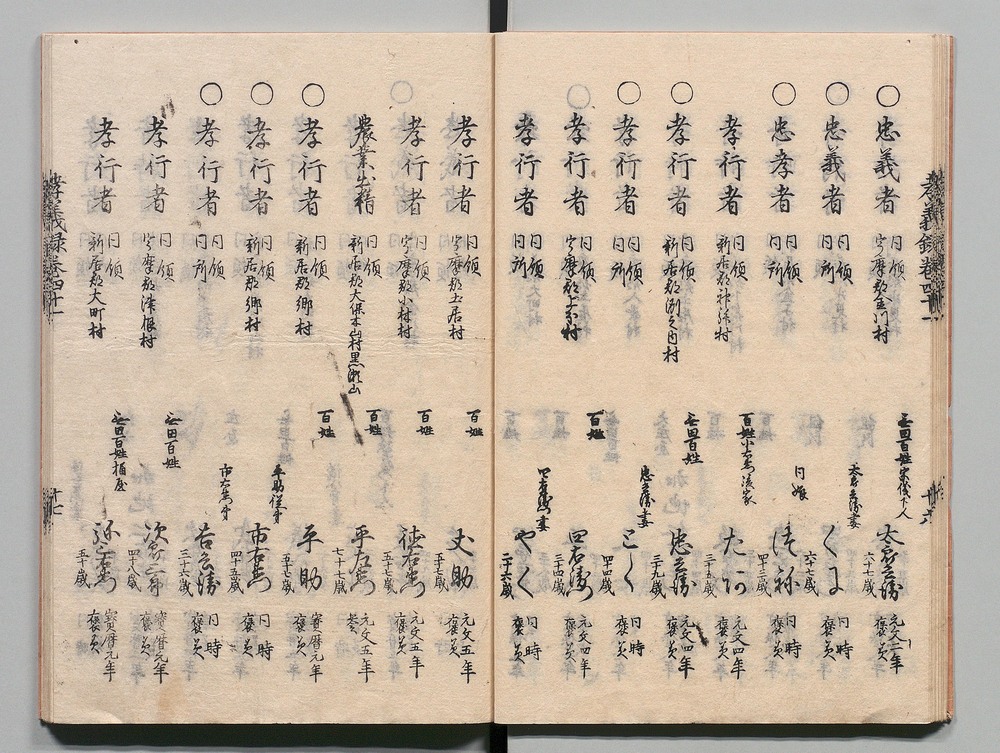 孝義録巻四十一
○
忠義者
同領
宇摩郡金川村
無田百姓宗儀下人
太郎兵衛
六十七歳
元文二年
褒美
○
忠義者
同領
同所
太郎兵衛妻
くま
六十七歳
同時
褒美
○
忠孝者
同領
同所
同娘
つね
四十三歳
同時
褒美
孝行者
同領
新居郡神拝村
百姓小右衛門後家
三十五歳
元文四年
褒美
○
孝行者
同領
新居郡洲之内村
無田百姓
忠兵衛
三十九歳
元文四年
褒美
○
孝行者
同領
同所
忠兵衛妻
とく
三十四歳
同時
褒美
○
孝行者
同領
宇摩郡
百姓
四右衛門
三十四歳
元文四年
褒美
孝行者
同領
同所
四右衛門妻
やく
二十六歳
同時
褒美
廿六
孝行者
同領
宇摩郡土居村
百姓
丈助
五十七歳
元文五年
褒美
○
孝行者
同領
宇摩郡小林村
百姓
徳右衛門
五十七歳
元文五年
褒美
農業出精
同領
新居郡大保木山村黒瀬山
百姓
平左衛門
七十七歳
元文五年
褒美
○
孝行者
同領
新居郡郷村
百姓
平助
五十七歳
寶暦元年
褒美
○
孝行者
同領
新居郡郷村
平助従弟
市右衛門
四十五歳
同時
褒美
○
孝行者
同領
同所
市右衛門弟
吉兵衛
三十六歳
同時
褒美
孝行者
同領
宇摩郡津根村
無田百姓
次郎三郎
四十八歳
寶暦元年
褒美
孝行者
同領
新居郡大町村
無田百姓桶屋
弥右衛門
五十歳
寶暦元年
褒美
孝義録巻四十一
廿七